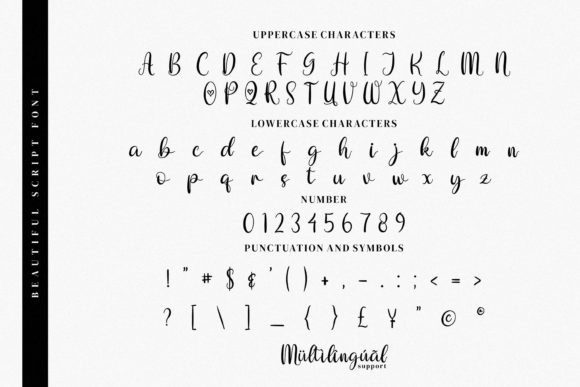 BEAUTIFUL SCRIPT FONT
UPPERCASE CHARACTERS
A B C D E F G H I J K L M N
O P Q R S T U V W X Y Z
LOWERCASE CHARACTERS
a b c d e f g h i j k l m n
o p q r s t u v w x y z
NUMBER
0 1 2 3 4 5 6 7 8 9
PUNCTUATION AND SYMBOLS
! " # $ & ' ( ) + , - . : ; < = >
? [ \ ] _ { } £ ¥ " © ®
Mültilingúàl
support